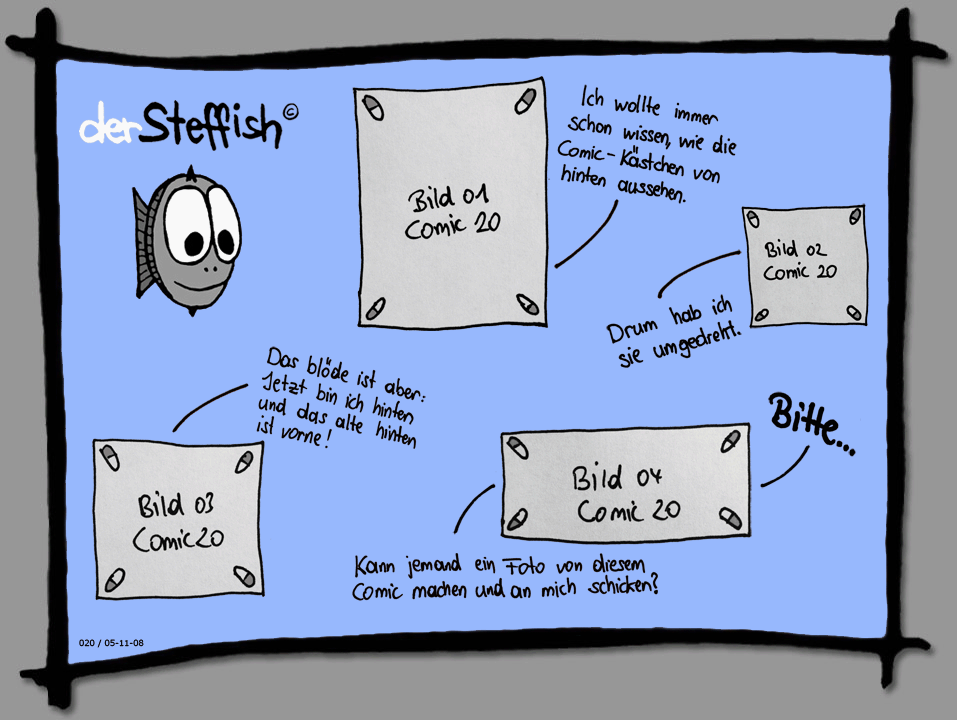 der Steffish©
Bild 01
Comic 20
Ich wollte immer
schon wissen, wie die
Comic-Kästchen von
hinten aussehen.
Bild 02
Comic 20
Drum hab ich
sie umgedreht.
Das blöde ist aber:
Jetzt bin ich hinten
und das alte hinten
ist vorne!
Bild 03
Comic 20
Bild 04
Comic 20
Kann jemand ein Foto von diesem
Comic machen und an mich schicken?
Bitte...
020 / 05-11-08